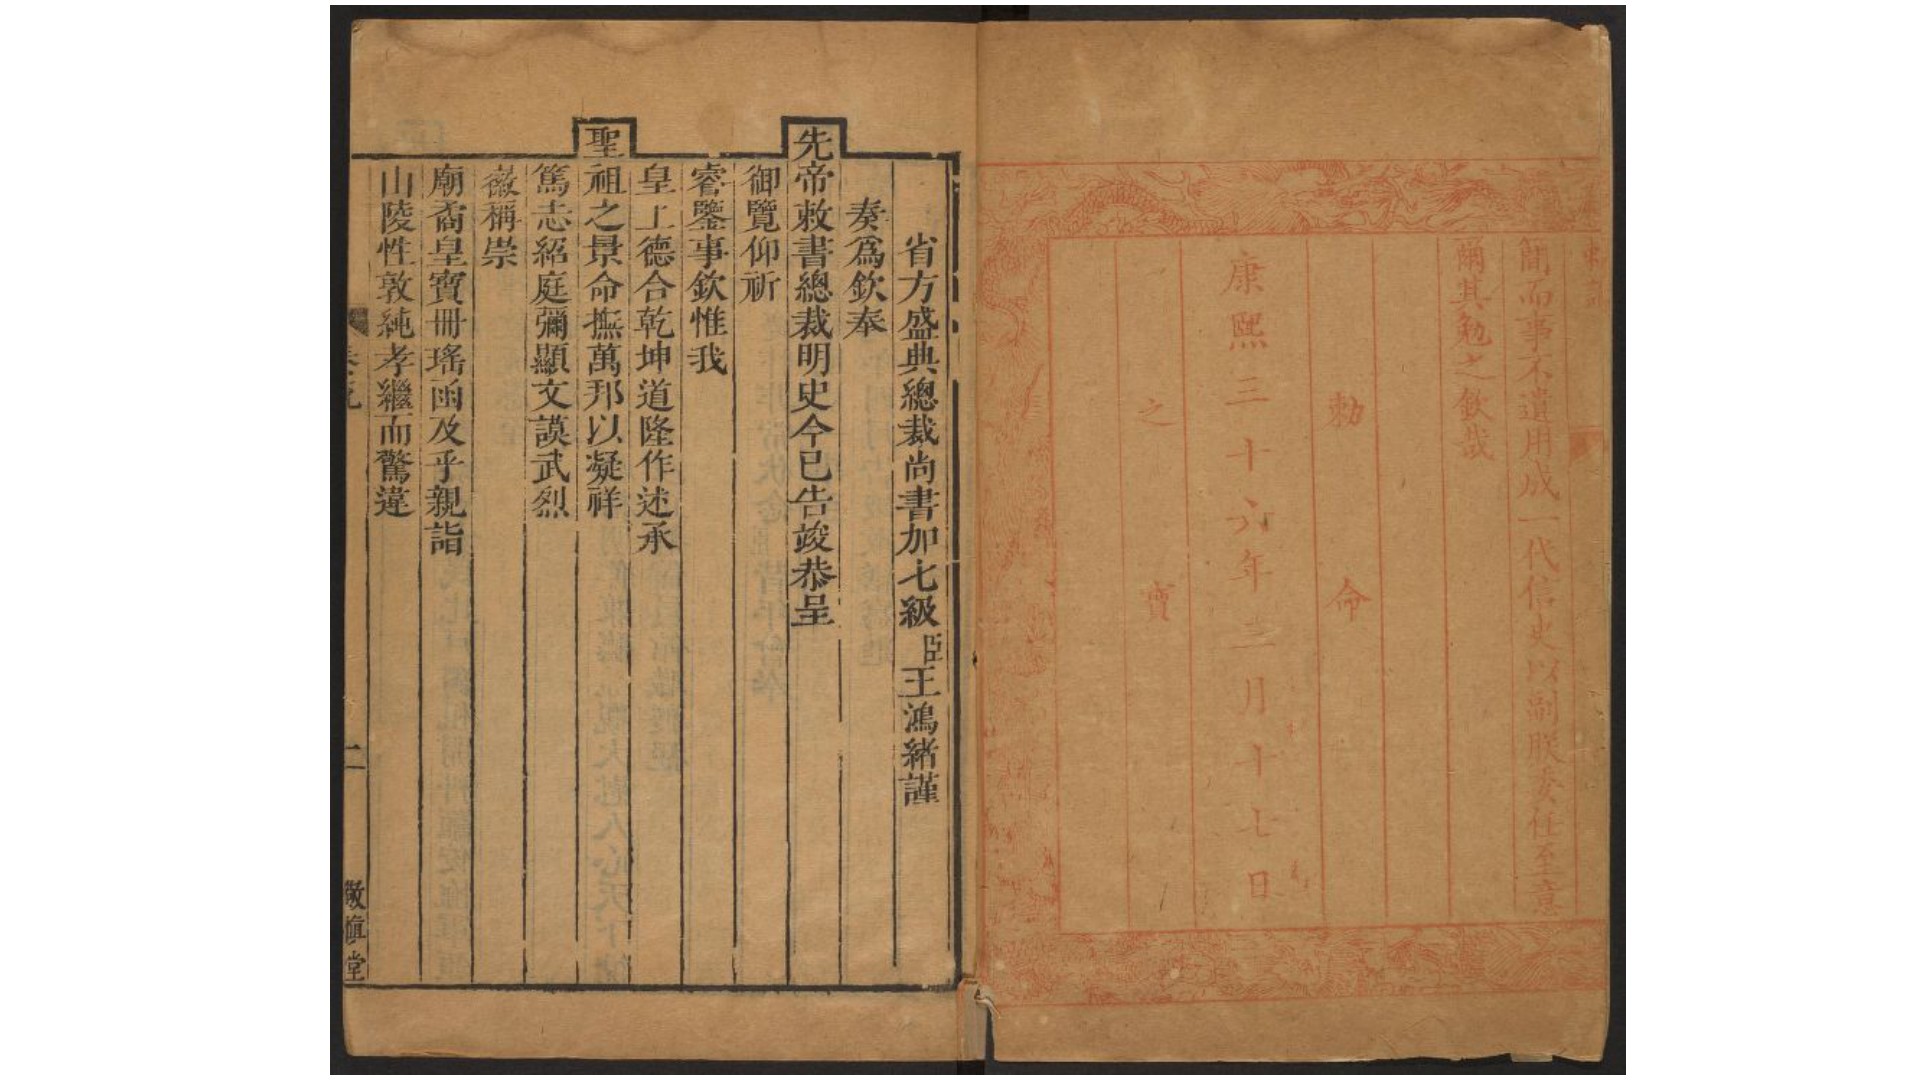 間而事不遺用成一代信史以副朕委任至意
爾其勉之欽哉
勅命
康熙三十六年三月十七日
之寶
省方盛典總裁尚書加七級臣王鴻緒謹
奏爲欽奉
先帝敕書總裁明史今已告竣恭呈
御覽仰祈
睿鑒事欽惟我
皇上德合乾坤道隆作述承
聖祖之景命撫萬邦以凝祥
篤志紹庭彌顯文謨武烈
徽稱崇
廟裔皇寶冊瑤函及乎親詣
山陵性敦純孝繼而驚違
二
敬慎堂